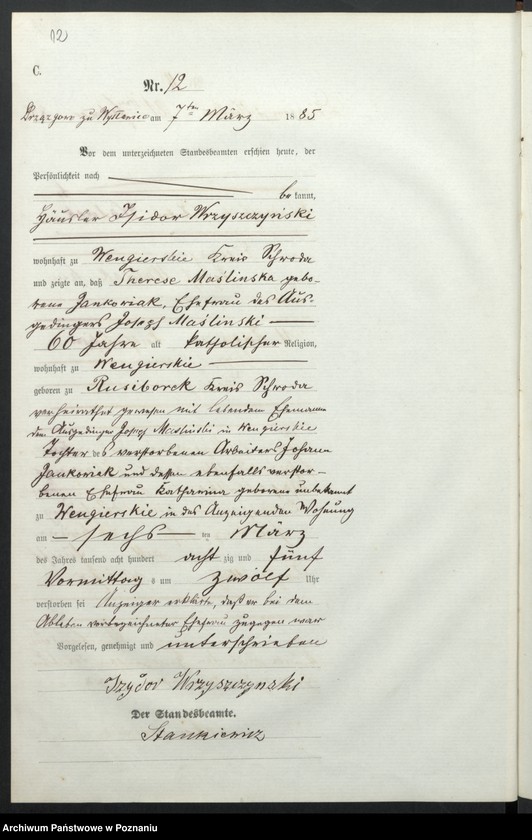 12
C.
Nr. 12
am 7ten März 1885
Vor dem unterzeichneten Standesbeamten erschien heute, der
Persönlichkeit nach
bekannt,
Häusler Isidor Wrzyszczyński
wohnhaft zu Wengierskie Kreis Schroda
und zeigte an, daß Therese Maślinska gebo-
rene Jankoviak, Ehefrau des Aus-
gedingers Joseph Maślinski
60 Jahre alt katholischer Religion,
wohnhaft zu Wengierskie
geboren zu Rusiborek Kreis Schroda
verheirathet gewesen mit lebendem Ehemann
dem Ausgedinger Joseph Maślinski in Wengierskie
Tochter des verstorbenen Arbeiters Johann
Jankoviak und dessen ebenfalls verstor-
benen Ehefrau Katharina geborene unbekannt
zu Wengierskie in des Anzeigenden Wohnung
am sechs ten März
des Jahres tausend acht hundert acht zig und fünf
Vormittag s um zwölf Uhr
verstorben sei Anzeiger erklärte, daß er bei dem
Ableben vorbezeichneter Ehefrau zugegen war
Vorgelesen, genehmigt und unterschrieben
Izydor Wrzyszczynski
Der Standesbeamte.
Stankiewicz
Archiwum Państwowe w Poznaniu